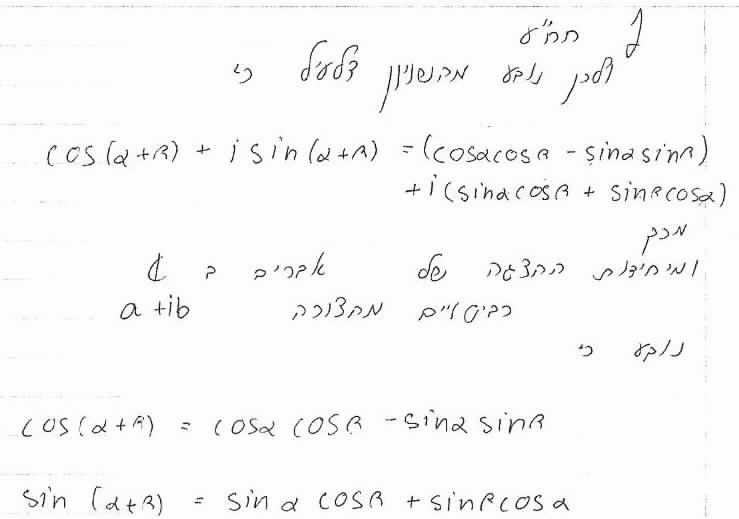 תח"ע
ולכן נובע מהשוויון דלעיל כי
cos(α+β) + i sin(α+β) = (cosαcosβ - sinαsinβ)
+i(sinαcosβ + sinβcosα)
מכך
ומיחידות ההצגה של אברים ב ℂ
כביטויים מהצורה a+ib
נובע כי
cos(α+β) = cosα cosβ - sinα sinβ
sin (α+β) = sin α cosβ + sinβcosα